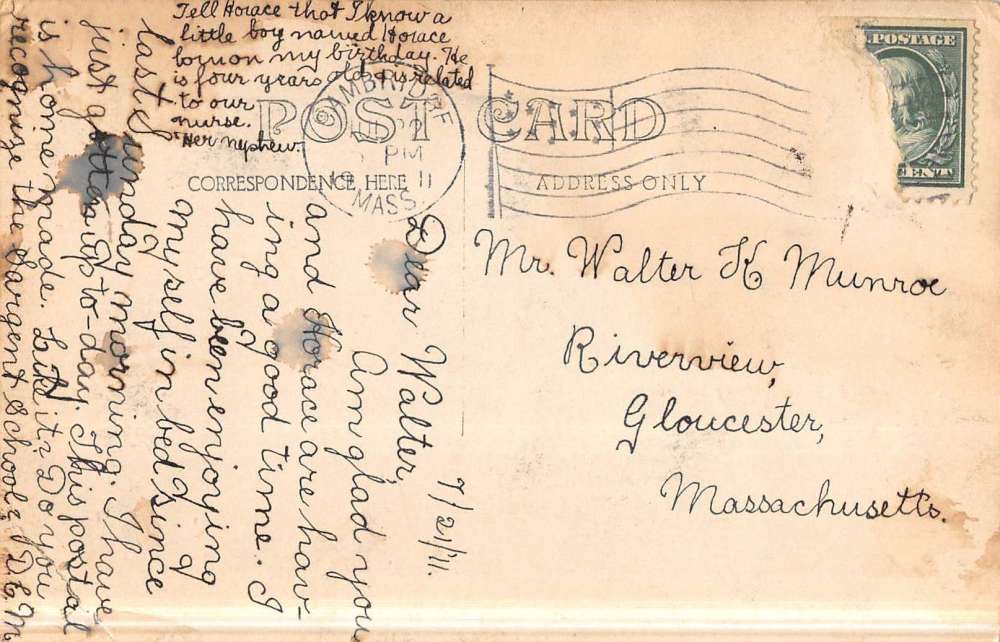 Tell Horace that I know a
little boy named Horace
born on my birthday. He
is four years old & is related
to our
nurse.
Her nyphew.
POST CARD
CORRESPONDENCE HERE
ADDRESS ONLY
CAMBRIDGE
PM
11
MASS.
POSTAGE
7/21/11.
Dear Walter,
Am glad you
and Horace are hav-
ing a good time. I
have been enjoying
myself in bed since
last Sunday morning. I have
just got up to-day. This postal
is home made. Like it? Do you
recognize the Sargent School? D.E.M
Mr. Walter K Munroe
Riverview,
Gloucester,
Massachusetts.